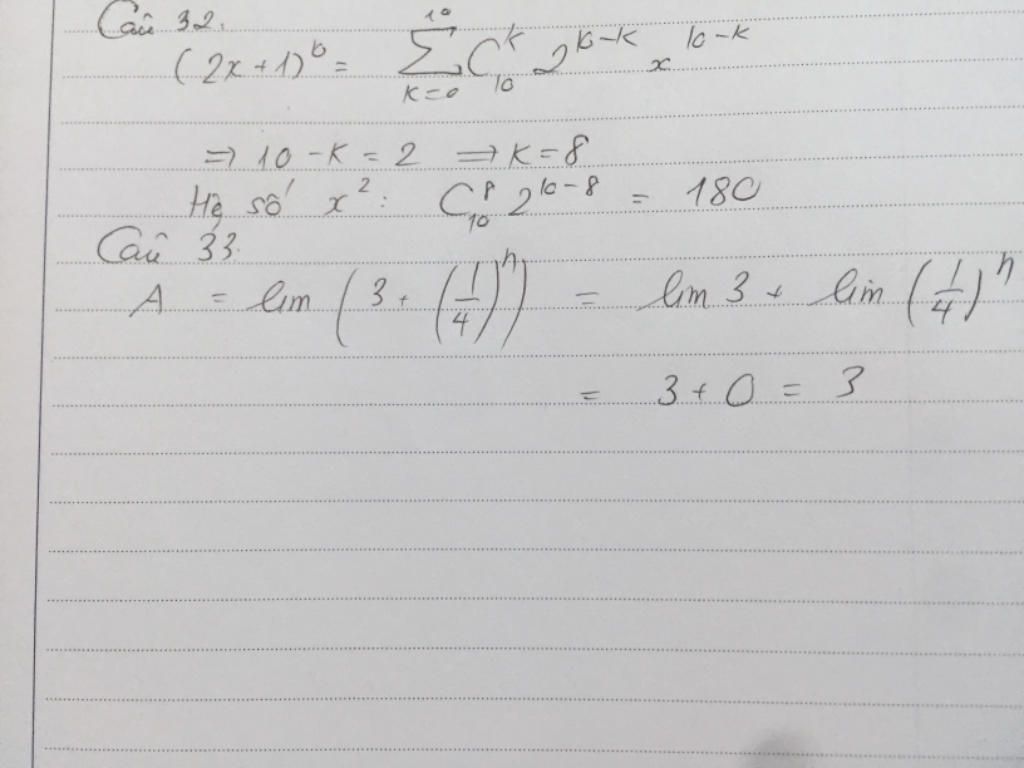 Câu 32.
(2x+1)^10 = ∑_{k=0}^{10} C_10^k 2^{10-k} x^{10-k}
⇒ 10 - k = 2 ⇒ k = 8
Hệ số x^2: C_10^8 2^{10-8} = 180
Câu 33.
A = lim (3 + (1/4)^n) = lim 3 + lim (1/4)^n
= 3 + 0 = 3